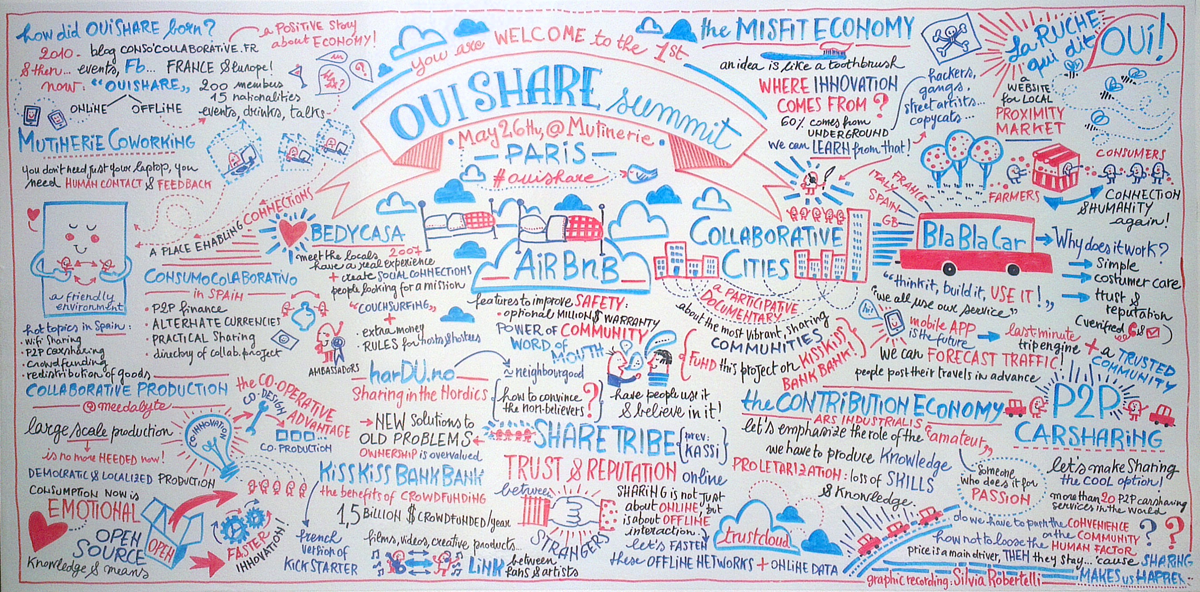 how did OUISHARE born?
a POSITIVE story
about ECONOMY!
2010- blog CONSOCOLLABORATIVE.FR
& then... events, Fb... FRANCE & Europe!
now: "OUISHARE,,
200 members
15 nationalities
events, drinks, talks
ONLINE
OFFLINE
MUTINERIE COWORKING
you don't need just your laptop, you
need HUMAN CONTACT & FEEDBACK
A PLACE ENABLING CONNECTIONS
a friendly
environment
you are WELCOME to the 1st
OUISHARE summit
May 26th, @ Mutinerie
PARIS
#ouishare
the MISFIT ECONOMY
an idea is like a toothbrush
WHERE INNOVATION
COMES FROM?
60% comes from
UNDERGROUND
we can LEARN from that!
hackers,
gangs,
street artists...
copycats...
La RUCHE
qui dit
OUi!
a
WEBSITE
for LOCAL
PROXIMITY
MARKET
CONSUMERS
FARMERS
CONNECTION
& HUMANITY
again!
BEDYCASA
2007
meet the locals
have a real experience
+ create SOCIAL CONNECTIONS
people looking for a mission
"COUCHSURFING,,
+
• extra money
• RULES for hosts/hosters
AMBASSADORS
CONSUMOCOLABORATIVO
in SPAIN
• P2P finance
• ALTERNATE CURRENCIES
• PRACTICAL Sharing
• directory of collab. project
hot topics in Spain:
• wifi sharing
• P2P carsharing
• crowdfunding
• redistribution of goods
AiRBnB
features to improve SAFETY:
• optional MILLION$ WARRANTY
POWER of COMMUNITY
WORD of
MOUTH
COLLABORATIVE
CITIES
a PARTICIPATIVE
DOCUMENTARY
about the most vibrant, sharing
COMMUNITIES
FUND this project on KISSKISS
BANKBANK!
FRANCE
ITALY
SPAIN
GB
BlaBlaCar
Why does it work?
Simple
costumer care
trust &
reputation
(verified
"think it, build it, USE IT!,,
"we all use our service"
hi!
mobile APP
is the future
last minute
trip engine
+ a TRUSTED
COMMUNITY
we can FORECAST TRAFFIC!
people post their travels in advance
COLLABORATIVE PRODUCTION
@meedabyte
large scale production
is no more NEEDED now!
DEMOCRATIC & LOCALIZED PRODUCTION
CONSUMPTION NOW is
EMOTIONAL
OPEN
SOURCE
OPEN
Knowledge & means
CO-INNOVATION
the CO-OPERATIVE
ADVANTAGE
CO-DESIGN
CO-PRODUCTION
FASTER
INNOVATION!
harDU.no
≈ neighbourgood
Sharing in the Nordics
NEW Solutions to
OLD PROBLEMS
OWNERSHIP is overvalued
how to convince
the non-believers?
have people use it
& believe in it!
KISSKISS BANKBANK
the benefits of CROWDFUNDING
1,5 BILLION $ CROWDFUNDED/year
films, videos, creative products...
french
version of
KICKSTARTER
LINK between
fans & artists
SHARETRIBE
prev:
KASSI
TRUST & REPUTATION online
between
STRANGERS
SHARING is not just
about ONLINE, but
is about OFFLINE
interaction.
let's FASTEN
these OFFLINE NETWORKS + ONLINE DATA
trustcloud
the CONTRIBUTION ECONOMY
ARS INDUSTRIALIS
let's emphasize the role of the "amateur,,
we have to produce Knowledge
PROLETARIZATION: loss of SKILLS
& Knowledge
someone
who does it for
PASSION
P2P
CARSHARING
let's make Sharing
the COOL option!
more than 20 P2P carsharing
services in the world
do we have to push the CONVENIENCE
or the COMMUNITY?
how not to loose the HUMAN FACTOR?
price is a main driver, THEN they stay... 'cause SHARING
MAKES us HAPPIER
graphic recording: Silvia Robertelli